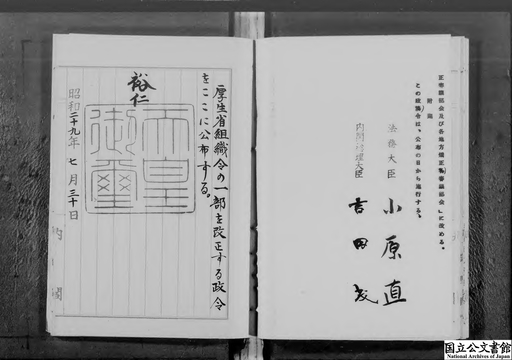 正帝籍部会及び各地方矯正事審議部会」に改める。
附則
この政令は、公布の日から施行する。
法務大臣 小原直
内閣総理大臣 吉田茂
厚生省組織令の一部を改正する政令
をここに公布する。
裕仁
天皇御璽
昭和二十九年七月三十日
内閣
国立公文書館
National Archives of Japan